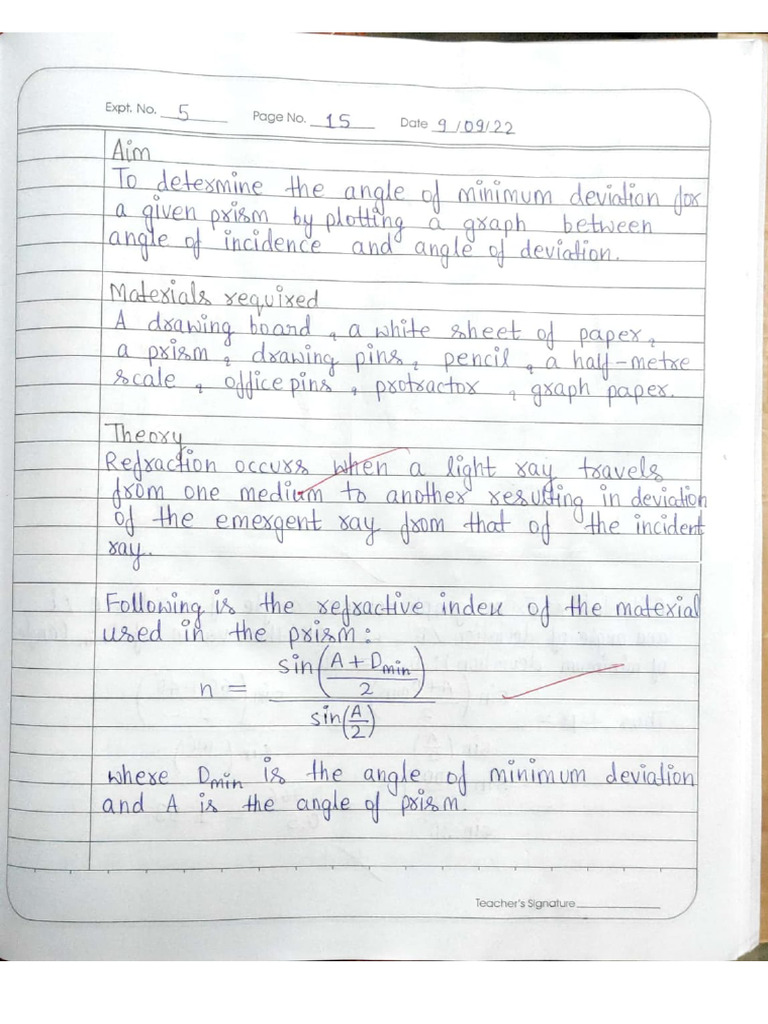 Expt. No. 5 Page No. 15 Date 9/09/22
Aim
To determine the angle of minimum deviation for
a given prism by plotting a graph between
angle of incidence and angle of deviation.
Materials required
A drawing board, a white sheet of paper,
a prism, drawing pins, pencil, a half-metre
scale, office pins, protractor, graph paper.
Theory
Refraction occurs when a light ray travels
from one medium to another resulting in deviation
of the emergent ray from that of the incident
ray.
Following is the refractive index of the material
used in the prism:
n = sin((A + Dmin)/2) / sin(A/2)
where Dmin is the angle of minimum deviation
and A is the angle of prism.
Teacher's Signature